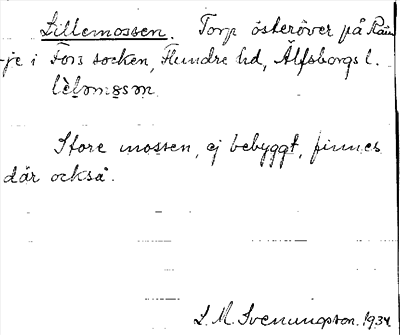 Lillemossen. Torp österöver på Rån
-je i Fors socken, Flundre hd, Älfsborgs l.
Store mossen, ej bebyggt, finnes
där också.
L. M. Svenungsson. 1934